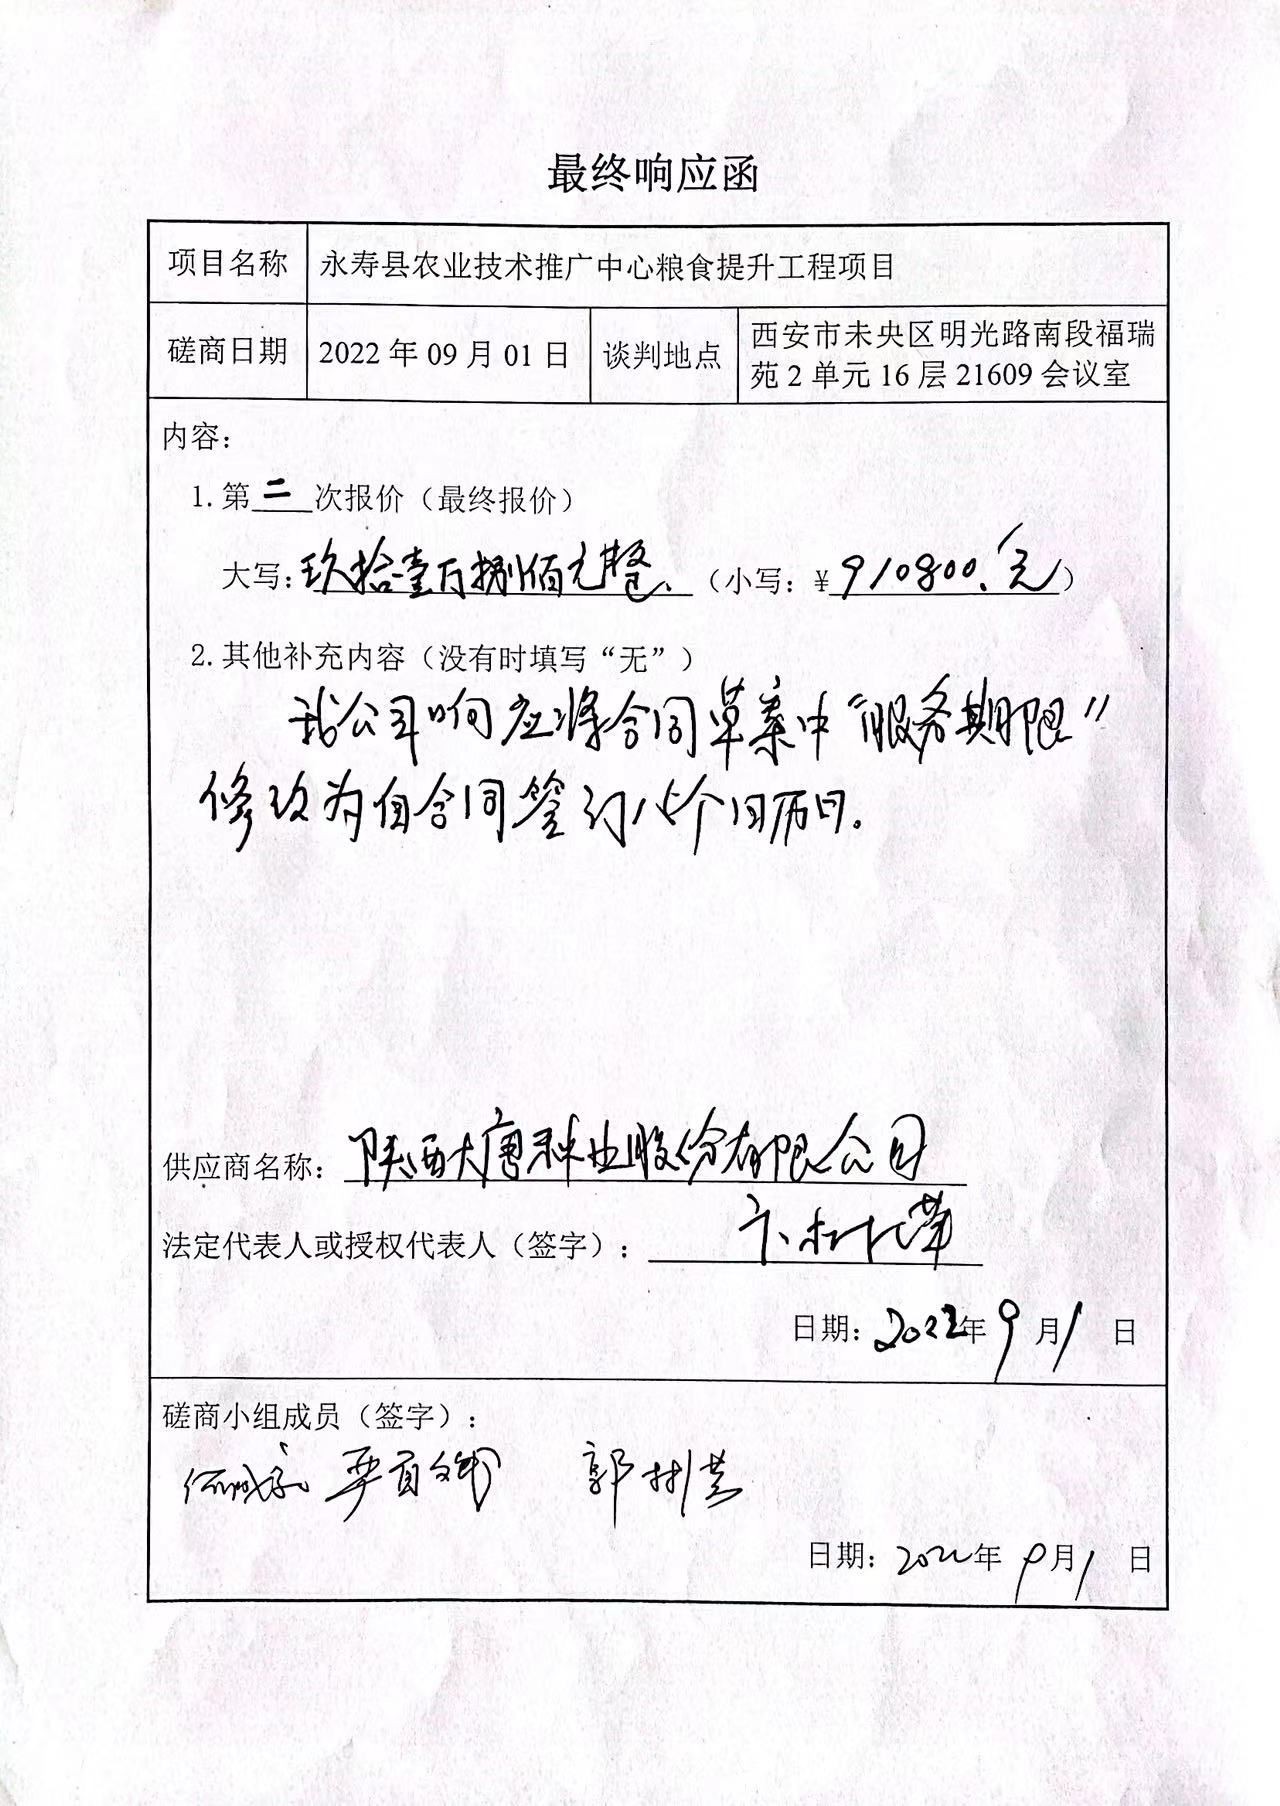 最终响应函
项目名称 永寿县农业技术推广中心粮食提升工程项目
磋商日期 2022年09月01日 谈判地点 西安市未央区明光路南段福瑞
苑2单元16层21609会议室
内容：
1.第二次报价（最终报价）
大写：玖拾壹万捌佰元整。（小写：¥910800.元）
2.其他补充内容（没有时填写“无”）
我公司响应将合同草案中“服务期限”
修改为自合同签订 个日历日。
供应商名称：陕西大唐种业股份有限公司
法定代表人或授权代表人（签字）：
日期：2022年9月1日
磋商小组成员（签字）：
郭彬
日期：2022年9月1日